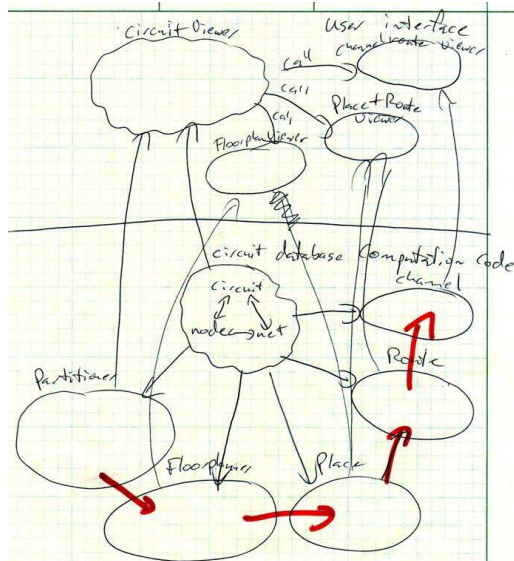 Circuit Viewer
User interface
channel route viewer
call
call
call
Place+Route
Viewer
Floorplan Viewer
circuit database
Computation code
channel
circuit
node
net
Route
Partitioner
Floorplanner
Place